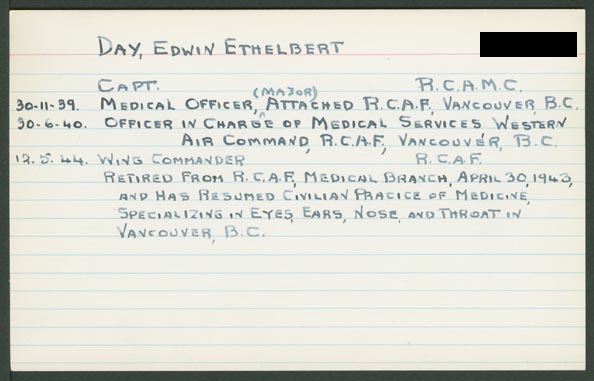 DAY, EDWIN ETHELBERT
CAPT. R.C.A.M.C.
30-11-39. MEDICAL OFFICER, (MAJOR) ATTACHED R.C.A.F., VANCOUVER, B.C.
30-6-40. OFFICER IN CHARGE OF MEDICAL SERVICES WESTERN
AIR COMMAND, R.C.A.F., VANCOUVER, B.C.
12.5.44. WING COMMANDER R.C.A.F.
RETIRED FROM R.C.A.F., MEDICAL BRANCH, APRIL 30, 1943,
AND HAS RESUMED CIVILIAN PRACICE OF MEDICINE,
SPECIALIZING IN EYES, EARS, NOSE, AND THROAT IN
VANCOUVER, B.C.